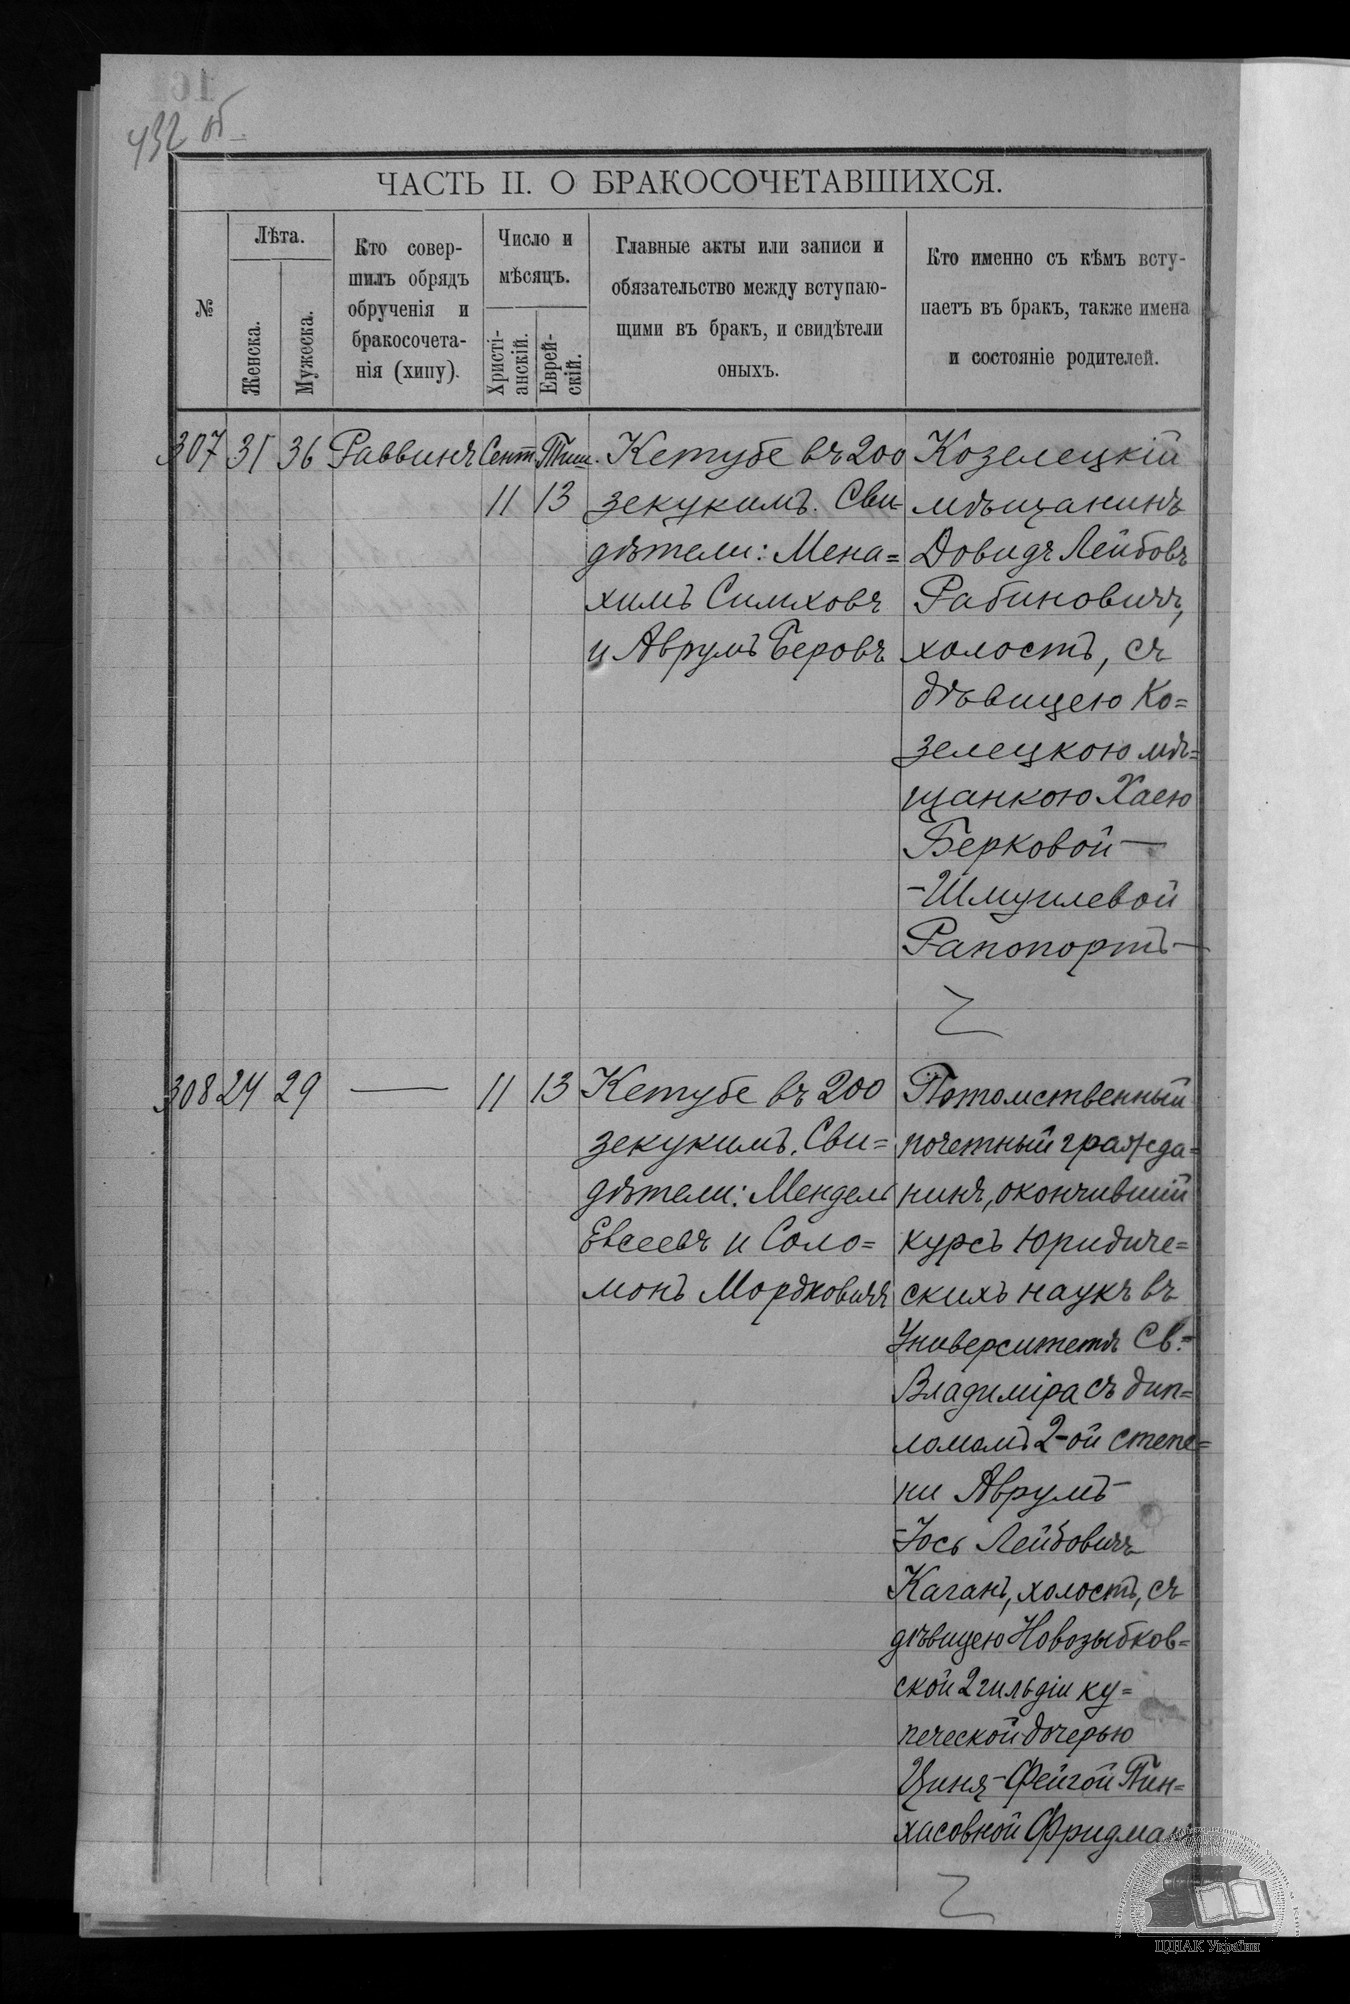 432 об.
ЧАСТЬ II. О БРАКОСОЧЕТАВШИХСЯ.
№
Лѣта.
Женска.
Мужеска.
Кто совер-
шилъ обрядъ
обрученія и
бракосочета-
нія (хипу).
Число и
мѣсяцъ.
Христі-
анскій.
Еврей-
скій.
Главные акты или записи и
обязательство между вступаю-
щими въ бракъ, и свидѣтели
оныхъ.
Кто именно съ кѣмъ всту-
паетъ въ бракъ, также имена
и состояніе родителей.
307 31 36 Раввинъ Сент. Тиш.
11 13
Кетубе въ 200
зекукимъ. Сви-
дѣтели: Мена=
химъ Симховъ
и Аврумъ Беровъ
Козелецкій
мѣщанинъ
Довидъ Лейбовъ
Рабиновичъ,
холостъ, съ
дѣвицею Ко=
зелецкою мѣ=
щанкою Хаею
Берковой—
-Шмуилевой
Рапопортъ—
308 24 29 — 11 13
Кетубе въ 200
зекукимъ. Сви=
дѣтели: Мендель
Евсеевъ и Соло=
монъ Мордковичъ
Потомственный
почетный гражда=
нинъ, окончившій
курсъ Юридиче=
скихъ наукъ въ
Университетѣ Св.=
Владиміра съ дип=
ломомъ 2-ой степе=
ни Аврумъ—
-Іось Лейбовичъ
Каганъ, холостъ, съ
дѣвицею Новозыбков=
ской 2 гильдіи ку=
печеской дочерью
Циня-Фейгой Пин=
хасовной Фридман
ЦДІАК України